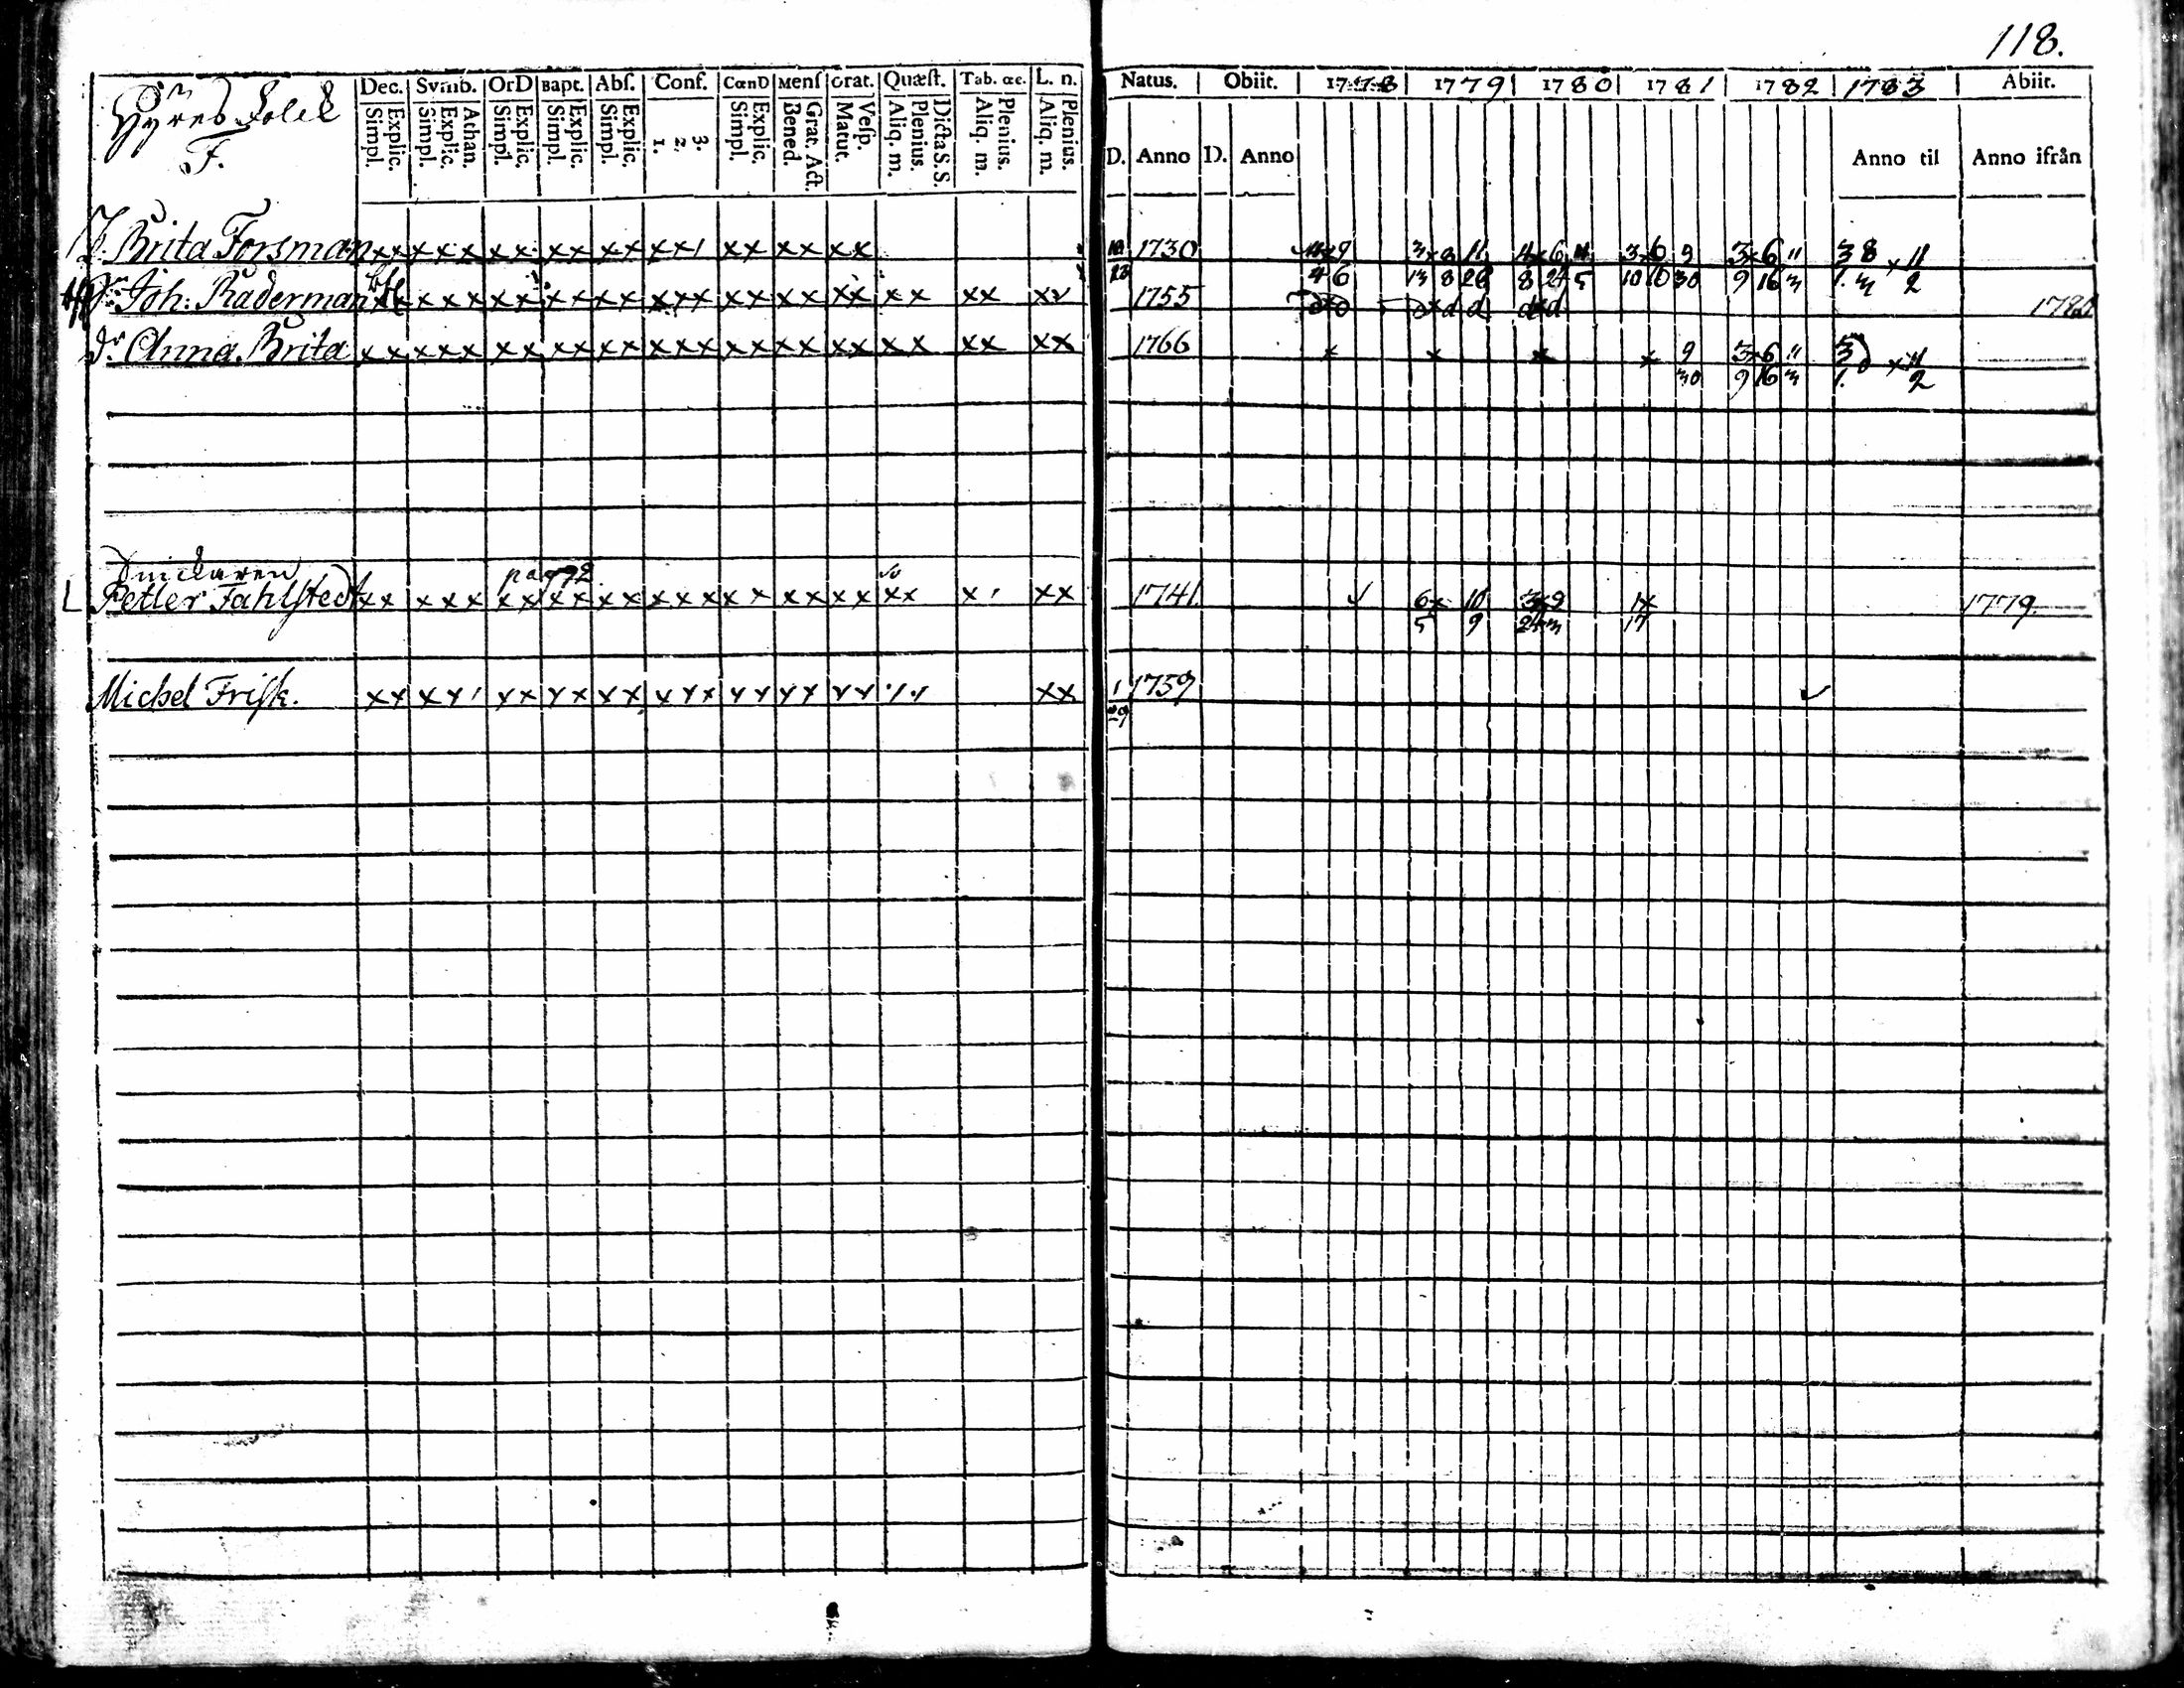 118.
Hyres Folck
F.
Dec. Symb. OrD Bapt. Abſ. Conf. CœnD Menſ Grat. Quæſt. Tab. œc. L. n.
Explic. Simpl. Athan. Explic. Simpl. Explic. Simpl. Explic. Simpl. Explic. Simpl. 3. 2. 1. Explic. Simpl. Grat. Act. Bened. Veſp. Matut. Dicta S. S. Plenius. Aliq. m. Plenius. Aliq. m. Plenius. Aliq. m.
Natus. Obiit. 1778 1779 1780 1781 1782 1783 Abiit.
D. Anno D. Anno Anno til Anno ifrån
Brita Forsman xx xxx xx xx xx xx/ xx xx xx 1730 4x9 3x8 11 4x6 11 3x6 9 3x6 11 3 8 x 11
4 6 13 8 26 8 24 5 10 10 30 9 16 3 1. 3 2
Joh: Raderman xxx xx xx xx xxx xx xx xx xx xx xx 1755 1780
dr Anna Brita xx xxx xx xx xx xxx xx xx xx xx xx xx 1766 x x x x 9 3x6 11 3 x 11
30 9 16 3 1. 2
Snickaren pag 92
Petter Fahlſtedt xx xxx xx xx xx xxx xx xx xx xx x, xx 1741. 6x 10 3x9 1x 1779.
5 9 24 3 17
Michel Friſk. xx xx, xx xx xx xxx xx xx xx xx 1 1759
29